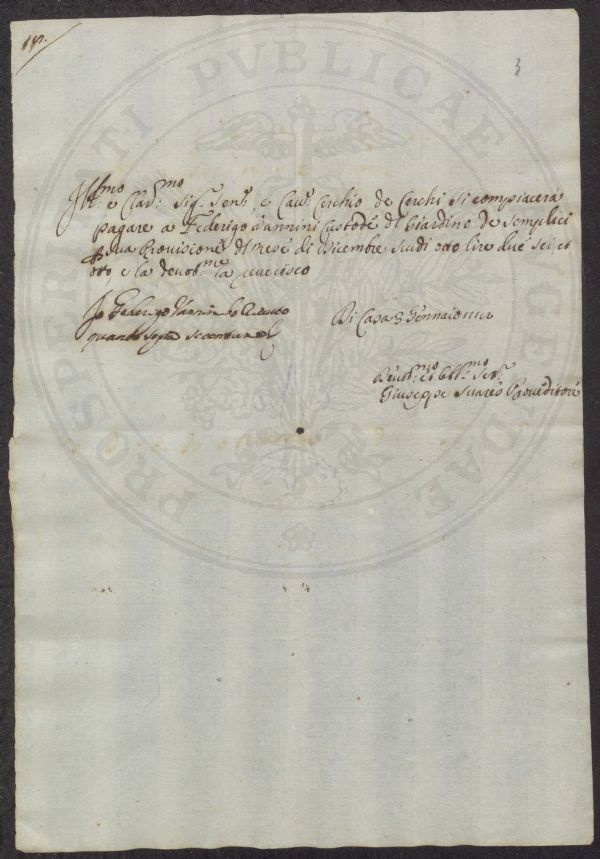 3
PROSPERITATI PVBLICAE
Ill:mo e Clar:mo Sig: Sen:e, e Cau: Cerchio de Cerchi si compiacerà
pagare a Federigo Vannini Custode del Giardino de Semplici
sua Provisione del mese di Dicembre scudi otto lire due sei et
otto, e la
Io Federigo Vannini ho
quanto sopra
Di Casa 3 Gennaio
Devot:mo et Obb:mo Ser:
Giuseppe Suares Proveditore